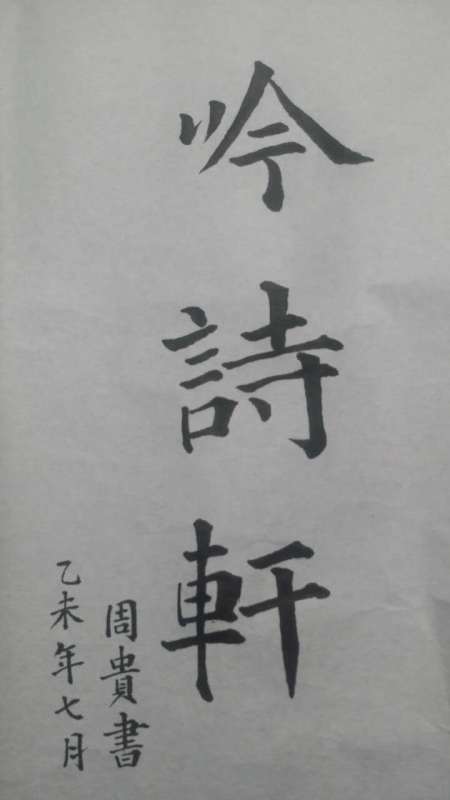 吟詩軒
周貴書
乙未年七月